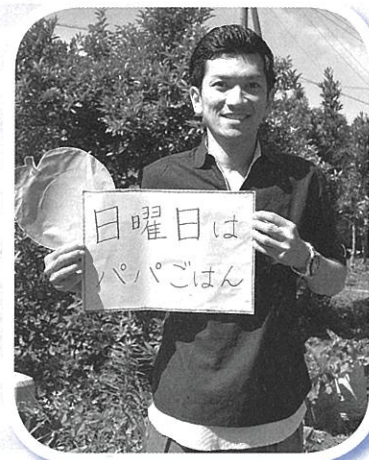 日曜日は
パパごはん